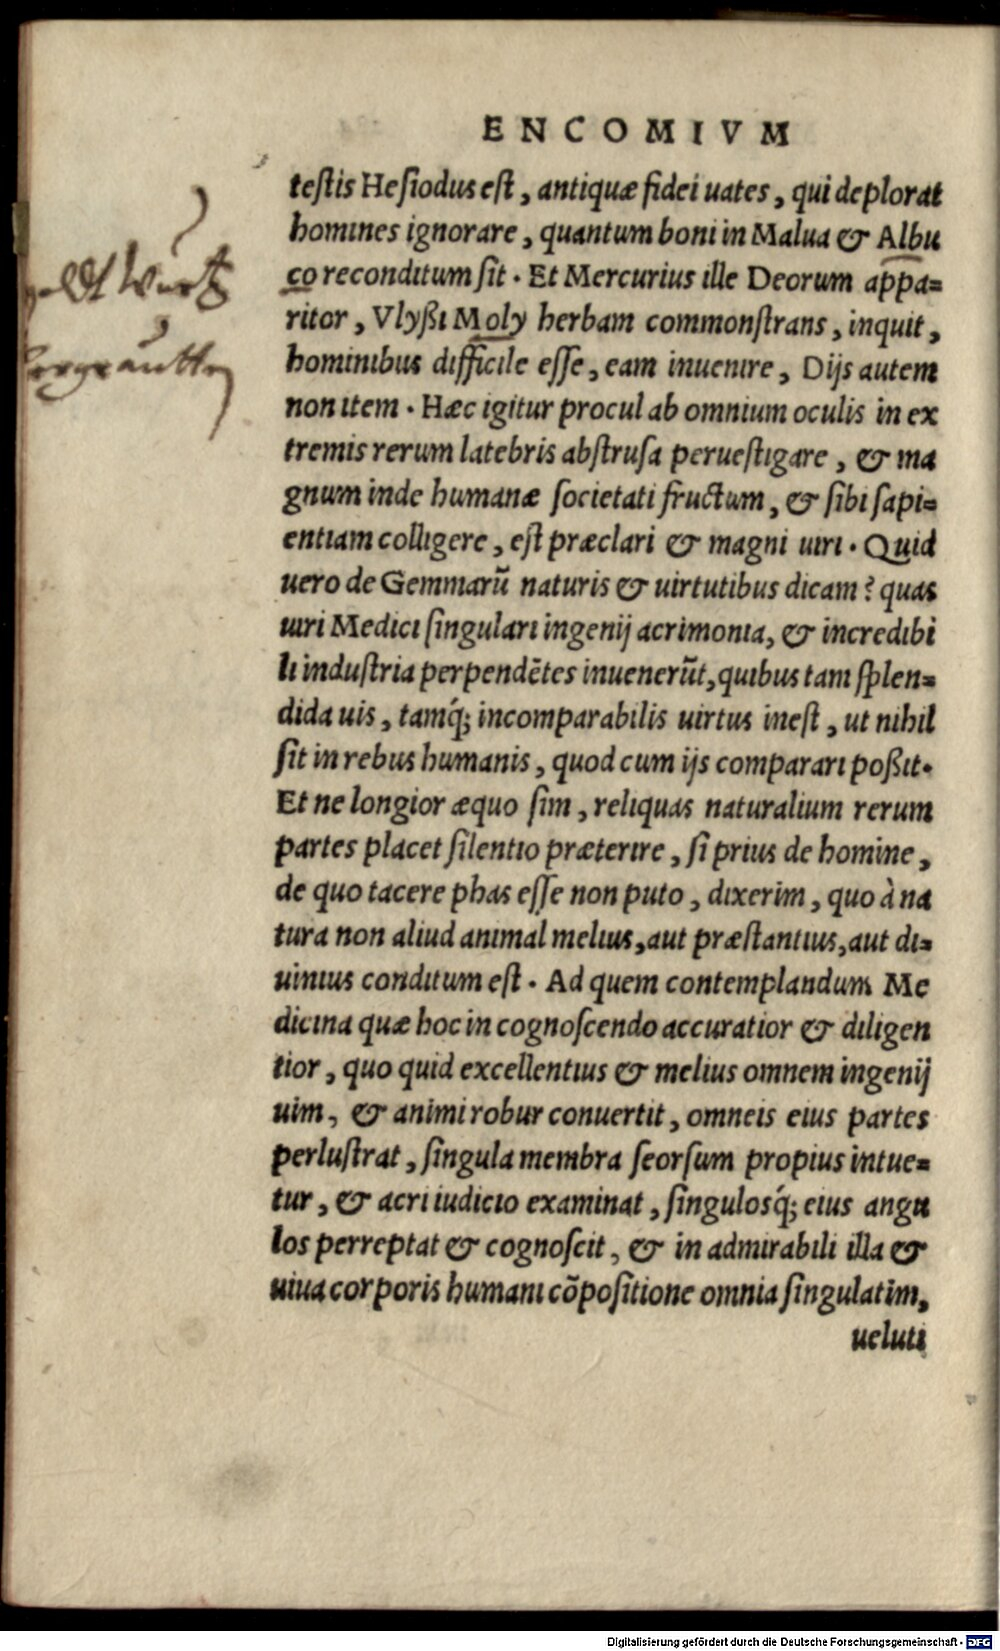 ENCOMIVM
teſtis Heſiodus eſt, antiquæ fidei uates, qui deplorat
homines ignorare, quantum boni in Malua & Albu
co reconditum ſit. Et Mercurius ille Deorum appa=
ritor, Vlyßi Moly herbam commonſtrans, inquit,
hominibus difficile eſſe, eam inuenire, Dijs autem
non item. Hæc igitur procul ab omnium oculis in ex
tremis rerum latebris abſtruſa perueſtigare, & ma
gnum inde humanæ ſocietati fructum, & ſibi ſapi=
entiam colligere, eſt præclari & magni uiri. Quid
uero de Gemmarũ naturis & uirtutibus dicam? quas
uiri Medici ſingulari ingenij acrimonia, & incredibi
li induſtria perpendẽtes inuenerũt, quibus tam ſplen=
dida uis, tamq́; incomparabilis uirtus ineſt, ut nihil
ſit in rebus humanis, quod cum ijs comparari poßit.
Et ne longior æquo ſim, reliquas naturalium rerum
partes placet ſilentio præterire, ſi prius de homine,
de quo tacere phas eſſe non puto, dixerim, quo à na
tura non aliud animal melius, aut præſtantius, aut di=
uinius conditum eſt. Ad quem contemplandum Me
dicina quæ hoc in cognoſcendo accuratior & diligen
tior, quo quid excellentius & melius omnem ingenij
uim, & animi robur conuertit, omneis eius partes
perluſtrat, ſingula membra ſeorſum propius intue=
tur, & acri iudicio examinat, ſingulosq́; eius angu
los perreptat & cognoſcit, & in admirabili illa &
uiua corporis humani cõpoſitione omnia ſingulatim,
ueluti
Digitalisierung gefördert durch die Deutsche Forschungsgemeinschaft - DFG